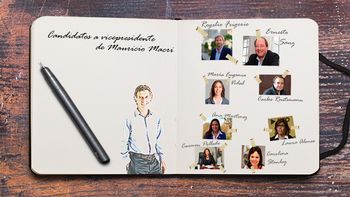 Candidatos a vicepresidente
de Mauricio Macri
Rogelio Frigerio
Ernesto
Sanz
María Eugenia
Vidal
Carlos Rosenkrantz
Ana Martínez
Laura Alonso
Carmen Polledo
Carolina
Stanley